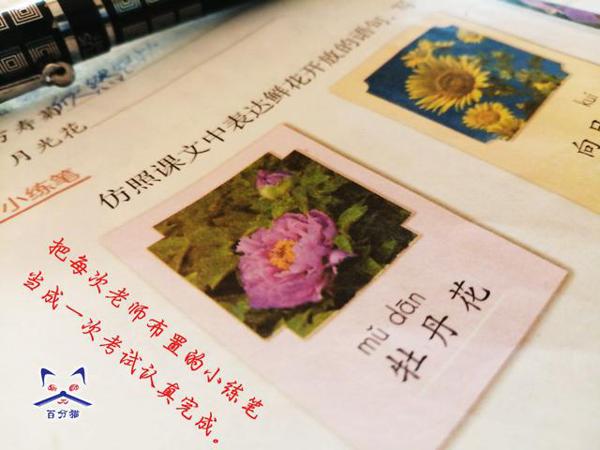 月光花
小练笔
仿照课文中表达鲜花开放的语句，写
kuí
向日
mǔ dān
牡丹花
把每次老师布置的小练笔
当成一次考试认真完成。
百分猫